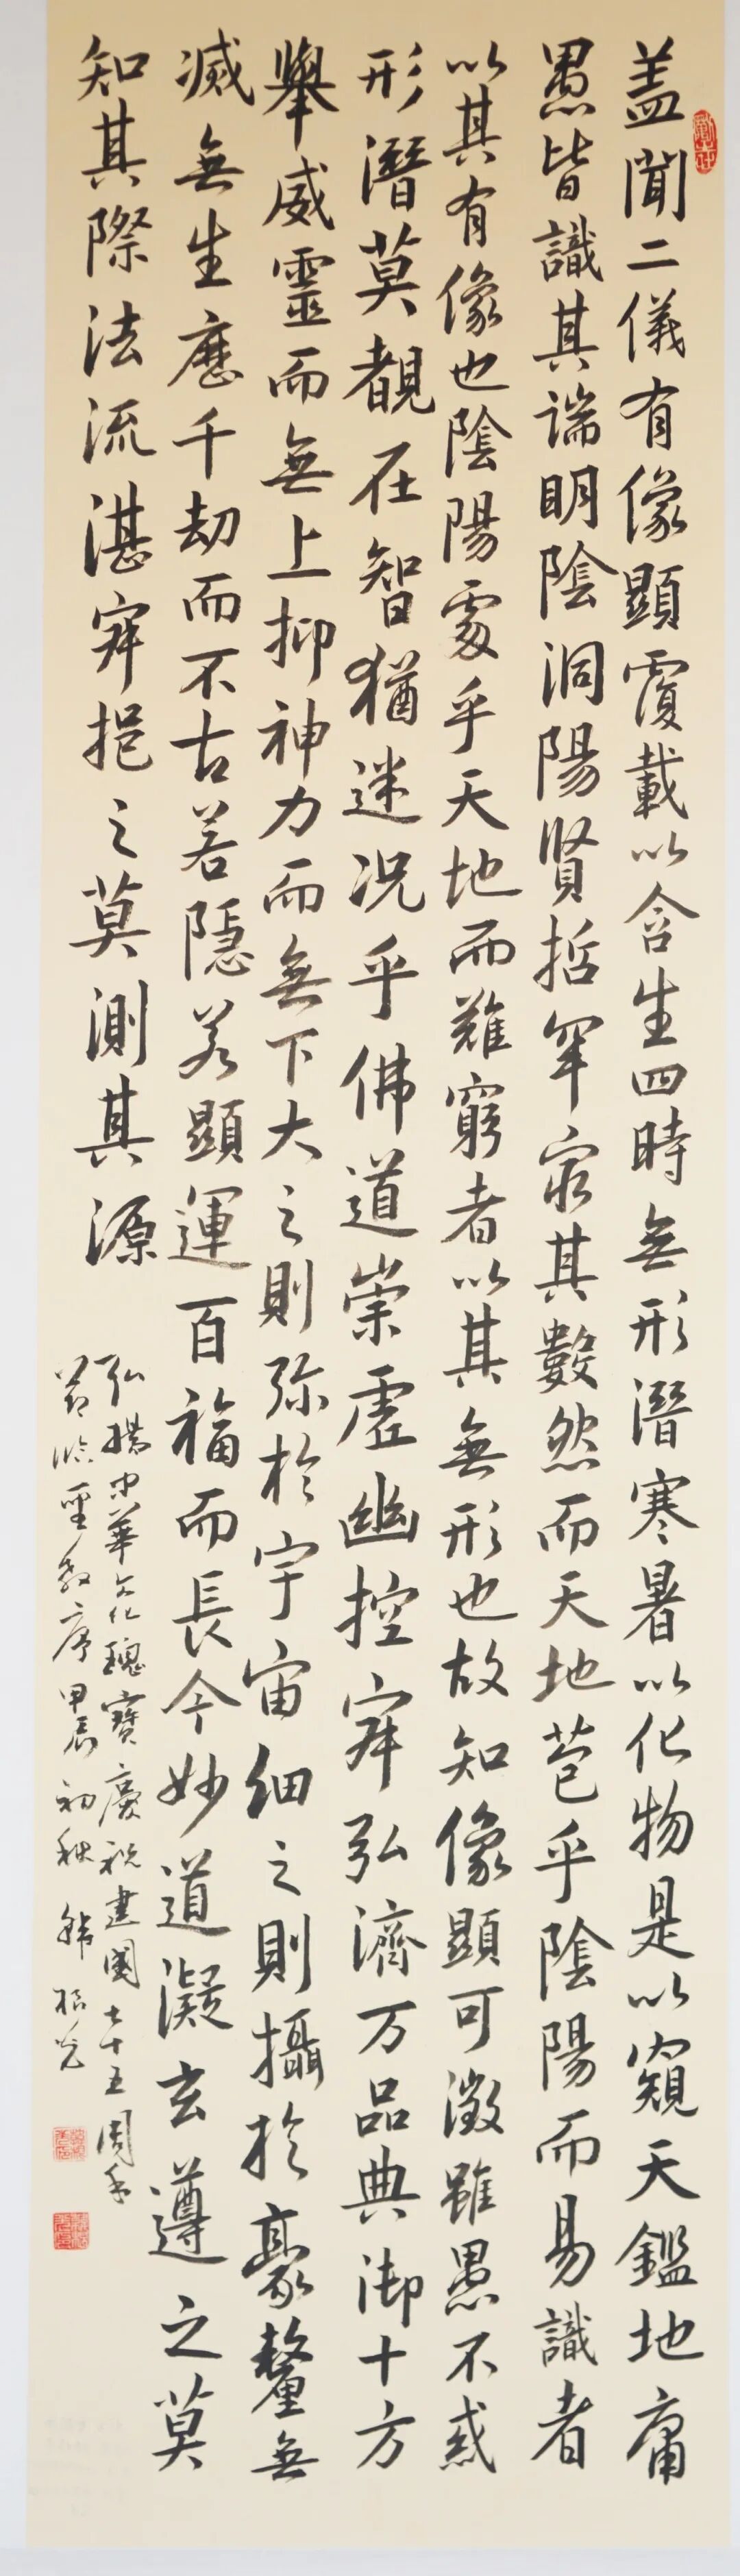 盖聞二儀有像顯覆載以含生四時無形潛寒暑以化物是以窺天鑑地庸
愚皆識其端明陰洞陽賢哲罕窮其數然而天地苞乎陰陽而易識者
以其有像也陰陽處乎天地而難窮者以其無形也故知像顯可徵雖愚不惑
形潛莫覩在智猶迷况乎佛道崇虛幽控寂弘濟万品典御十方
舉威靈而無上抑神力而無下大之則弥於宇宙細之則攝於豪釐無
滅無生歷千劫而不古若隱若顯運百福而長今妙道凝玄遵之莫
知其際法流湛寂挹之莫測其源
弘揚中華文化瑰寶慶祝建國七十五周年
節臨聖教序甲辰初秋 韓根光